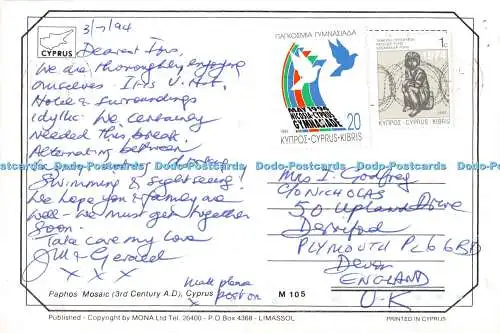 3/7/94
CYPRUS
Dearest Iris,
We are thoroughly enjoying
ourselves. It is V. Hot.
Hotel & surroundings
idyllic. We certainly
needed this break.
Alternating between
Swimming & sightseeing!
We hope you & family are
well - we must get together
Soon.
Take care my love
& Gerald
x x x
ΠΑΓΚΟΣΜΙΑ ΓΥΜΝΑΣΙΑΔΑ
MAY 1994
NICOSIA-CYPRUS
GYMNASIADE
20
ΚΥΠΡΟΣ-CYPRUS-KIBRIS
1c
ΚΥΠΡΟΣ CYPRUS KIBRIS
Dodo-Postcards Dodo-Postcards Dodo-Postcards Dodo-Postcards
Mrs I. Godfrey
C/O NICHOLAS
50 Upland Drive
Derriford
PLYMOUTH PL6 6BD
Devon
ENGLAND
U-K
Paphos Mosaic (3rd Century A.D), Cyprus
M 105
Published - Copyright by MONA Ltd Tel. 26400 - P.O Box 4368 - LIMASSOL
PRINTED IN CYPRUS